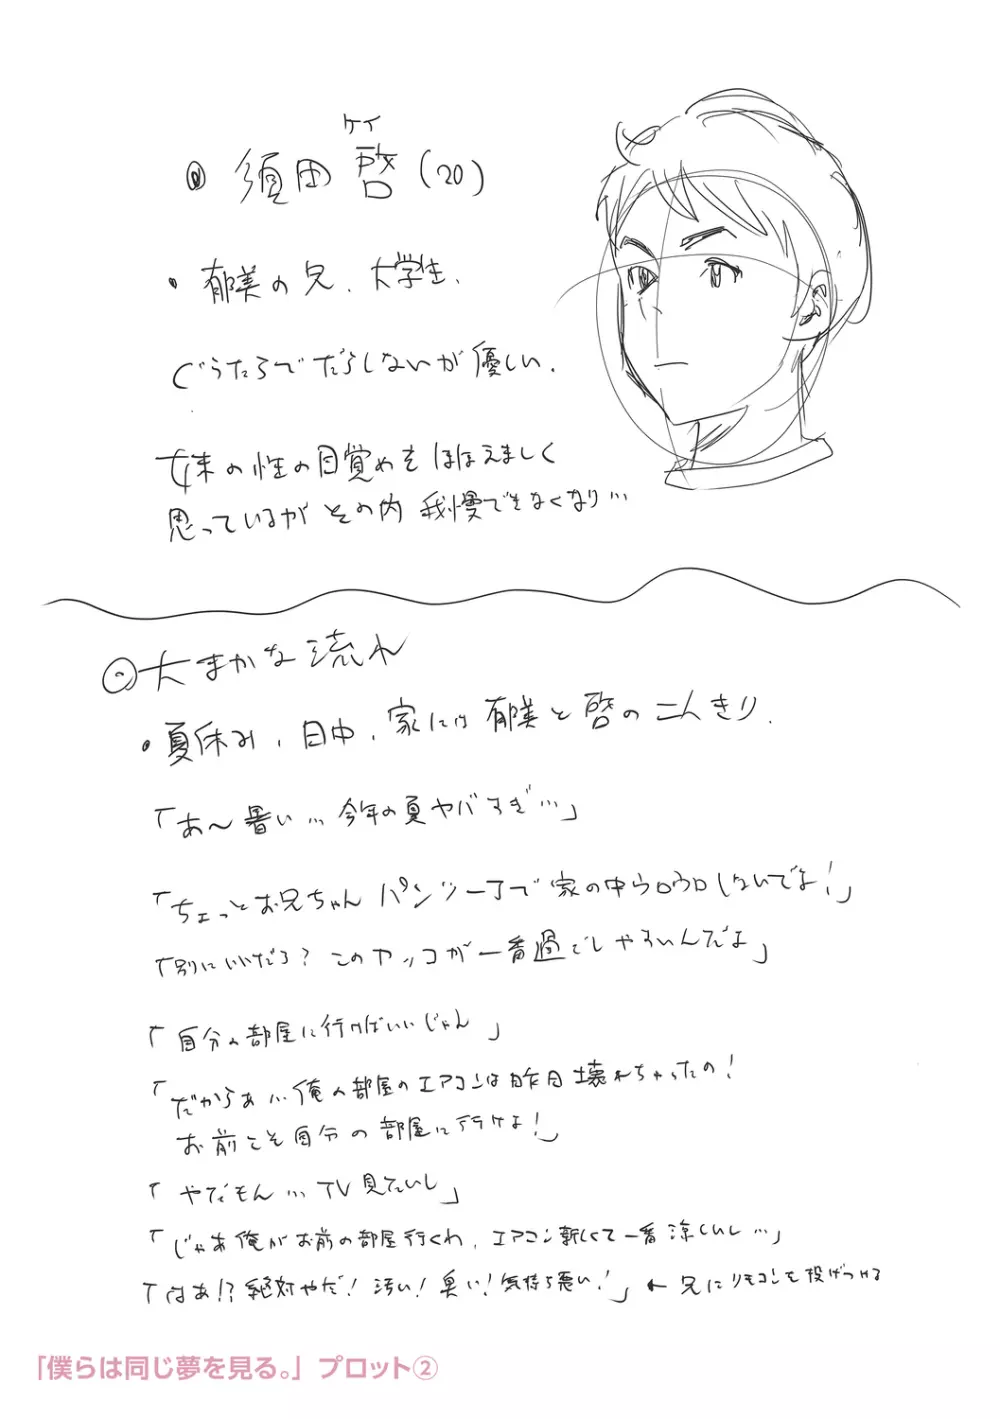 ケイ
須田 啓(20)
・郁美の兄、大学生.
ぐうたらでだらしないが優しい.
妹の性の目覚めをほほえましく
思っているがその内 我慢できなくなり…
◎大まかな流れ
・夏休み、日中、家には郁美と啓の二人きり.
「あ〜暑い…今年の夏ヤバすぎ…」
「ちょっとお兄ちゃん パンツ一丁で家の中ウロウロしないでよ!」
「別にいいだろ?このカッコが一番過ごしやすいんだよ」
「自分の部屋に行けばいいじゃん」
「だからぁ…俺の部屋のエアコンは昨日壊れちゃったの!
お前こそ自分の部屋に行けよ!」
「やだもん…TV見たいし」
「じゃあ俺がお前の部屋行くわ、エアコン新しくて一番涼しいし…」
「はあ!?絶対やだ!汚い!臭い!気持ち悪い!」←兄にリモコンを投げつける
「僕らは同じ夢を見る。」プロット②